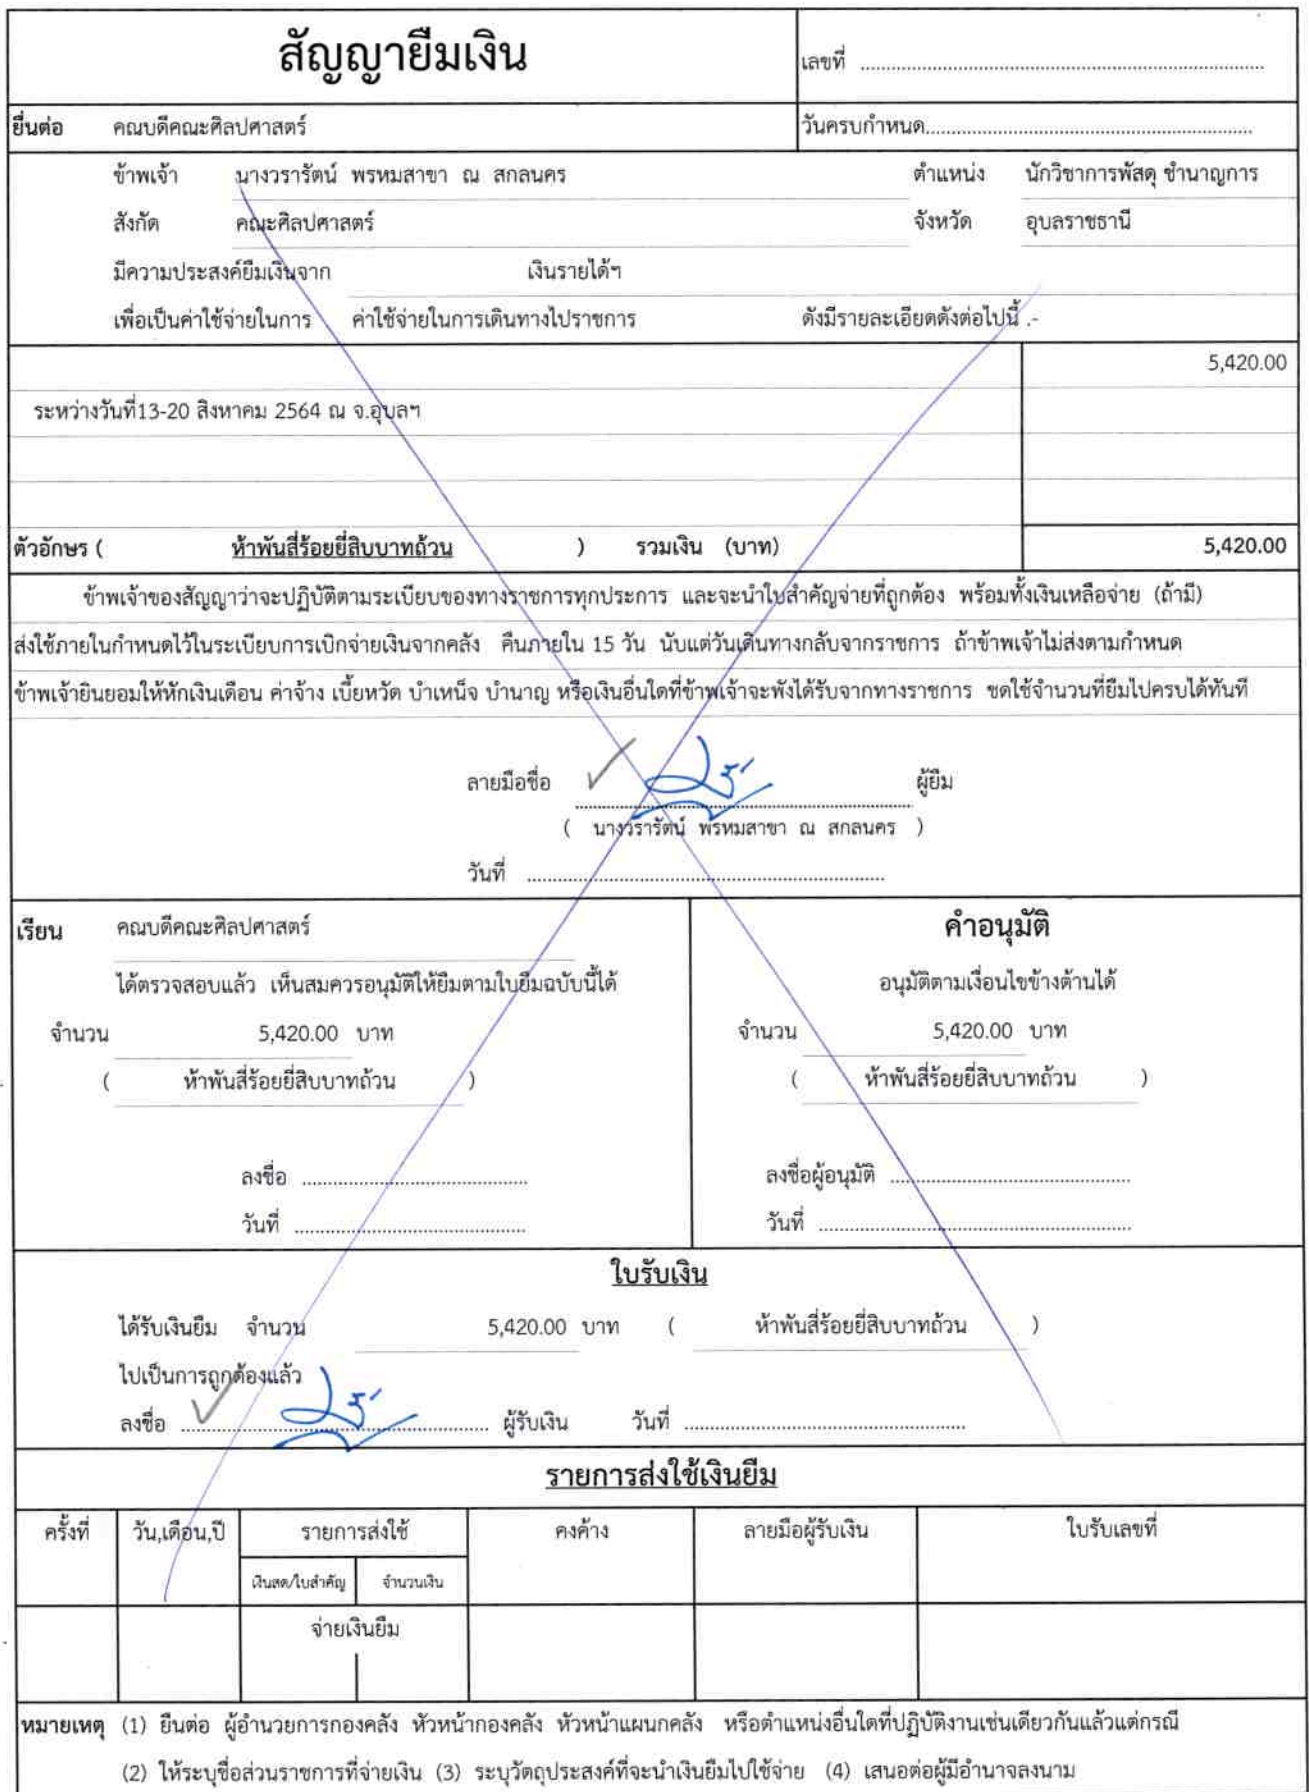 สัญญายืมเงิน
เลขที่ ........................................
ยื่นต่อ คณบดีคณะศิลปศาสตร์
วันครบกำหนด........................................
ข้าพเจ้า นางวรารัตน์ พรหมสาขา ณ สกลนคร ตำแหน่ง นักวิชาการพัสดุ ชำนาญการ
สังกัด คณะศิลปศาสตร์ จังหวัด อุบลราชธานี
มีความประสงค์ยืมเงินจาก เงินรายได้ฯ
เพื่อเป็นค่าใช้จ่ายในการ ค่าใช้จ่ายในการเดินทางไปราชการ ดังมีรายละเอียดดังต่อไปนี้ .-
5,420.00
ระหว่างวันที่13-20 สิงหาคม 2564 ณ จ.อุบลฯ
ตัวอักษร ( ห้าพันสี่ร้อยยี่สิบบาทถ้วน ) รวมเงิน (บาท) 5,420.00
ข้าพเจ้าของสัญญาว่าจะปฏิบัติตามระเบียบของทางราชการทุกประการ และจะนำใบสำคัญจ่ายที่ถูกต้อง พร้อมทั้งเงินเหลือจ่าย (ถ้ามี)
ส่งใช้ภายในกำหนดไว้ในระเบียบการเบิกจ่ายเงินจากคลัง คืนภายใน 15 วัน นับแต่วันเดินทางกลับจากราชการ ถ้าข้าพเจ้าไม่ส่งตามกำหนด
ข้าพเจ้ายินยอมให้หักเงินเดือน ค่าจ้าง เบี้ยหวัด บำเหน็จ บำนาญ หรือเงินอื่นใดที่ข้าพเจ้าจะพึงได้รับจากทางราชการ ชดใช้จำนวนที่ยืมไปครบได้ทันที
ลายมือชื่อ ........................................ ผู้ยืม
( นางวรารัตน์ พรหมสาขา ณ สกลนคร )
วันที่ ........................................
เรียน คณบดีคณะศิลปศาสตร์
ได้ตรวจสอบแล้ว เห็นสมควรอนุมัติให้ยืมตามใบยืมฉบับนี้ได้
จำนวน 5,420.00 บาท
( ห้าพันสี่ร้อยยี่สิบบาทถ้วน )
ลงชื่อ ........................................
วันที่ ........................................
คำอนุมัติ
อนุมัติตามเงื่อนไขข้างต้านได้
จำนวน 5,420.00 บาท
( ห้าพันสี่ร้อยยี่สิบบาทถ้วน )
ลงชื่อผู้อนุมัติ ........................................
วันที่ ........................................
ใบรับเงิน
ได้รับเงินยืม จำนวน 5,420.00 บาท ( ห้าพันสี่ร้อยยี่สิบบาทถ้วน )
ไปเป็นการถูกต้องแล้ว
ลงชื่อ ........................................ ผู้รับเงิน วันที่ ........................................
รายการส่งใช้เงินยืม
ครั้งที่ วัน,เดือน,ปี รายการส่งใช้ คงค้าง ลายมือผู้รับเงิน ใบรับเลขที่
เงินสด/ใบสำคัญ จำนวนเงิน
จ่ายเงินยืม
หมายเหตุ (1) ยืนต่อ ผู้อำนวยการกองคลัง หัวหน้ากองคลัง หัวหน้าแผนกคลัง หรือตำแหน่งอื่นใดที่ปฏิบัติงานเช่นเดียวกันแล้วแต่กรณี
(2) ให้ระบุชื่อส่วนราชการที่จ่ายเงิน (3) ระบุวัตถุประสงค์ที่จะนำเงินยืมไปใช้จ่าย (4) เสนอต่อผู้มีอำนาจลงนาม